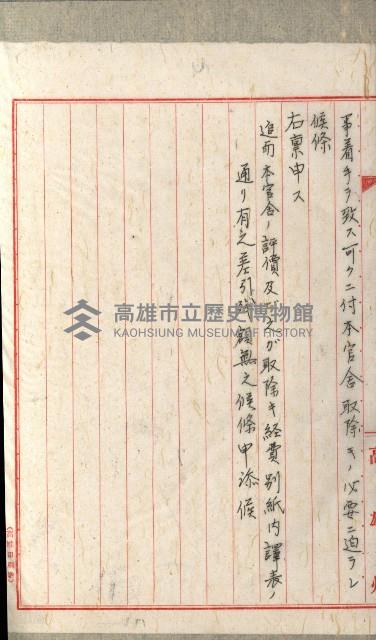 事着手ヲ致ス可クニ付本官舎取除キノ必要ニ迫ラレ
候條
右稟申ス
追而本官舎ノ評價及之ガ取除キ経費別紙内譯表ノ
通リ有之差引残額無之候條申添候
高雄州
高雄市立歷史博物館
KAOHSIUNG MUSEUM OF HISTORY